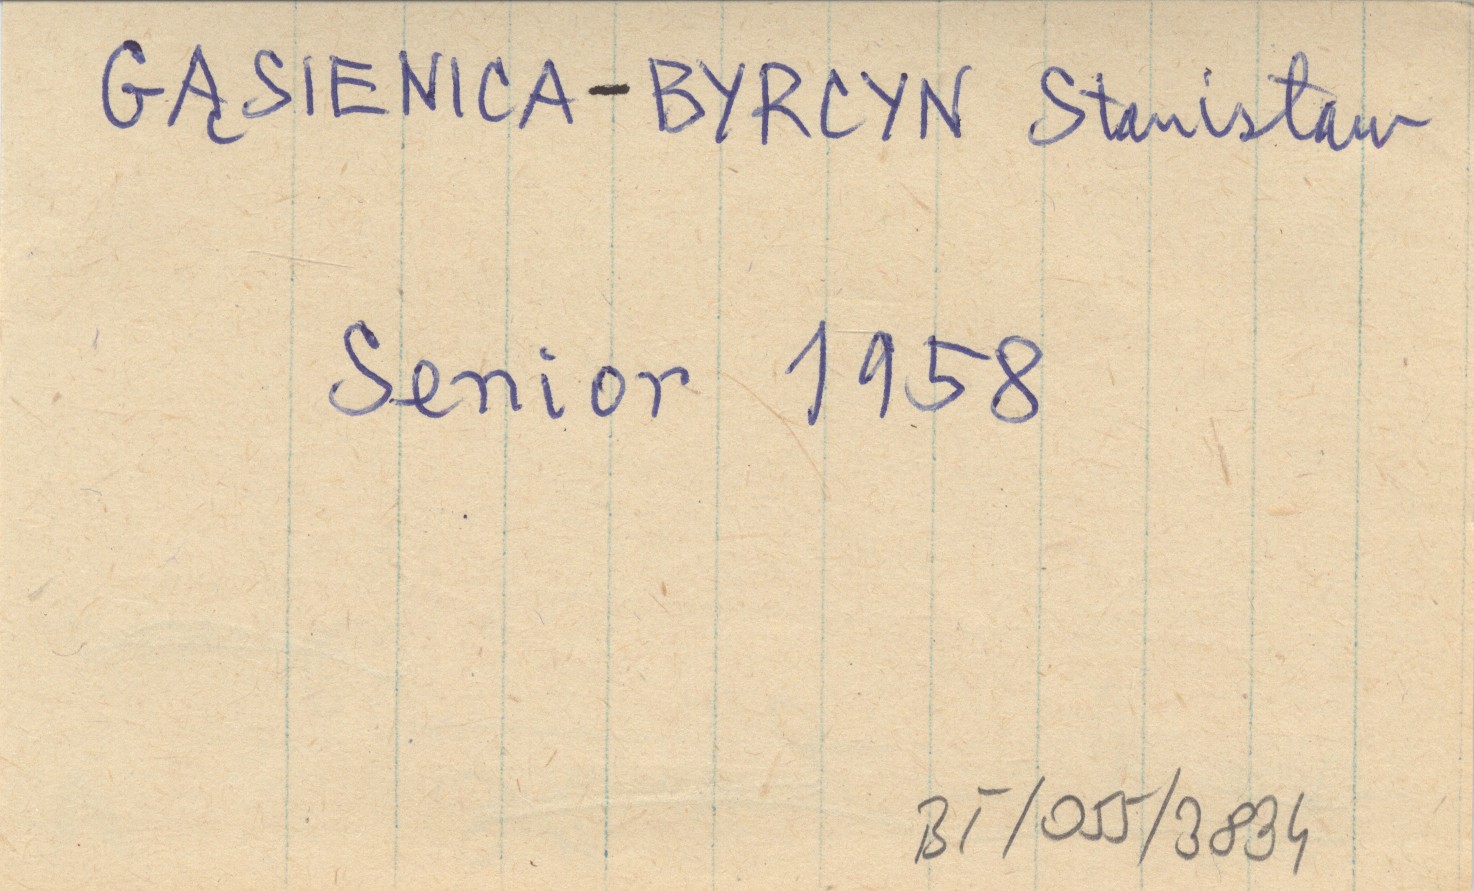 GĄSIENICA-BYRCYN Stanisław
Senior 1958
BT/055/3834